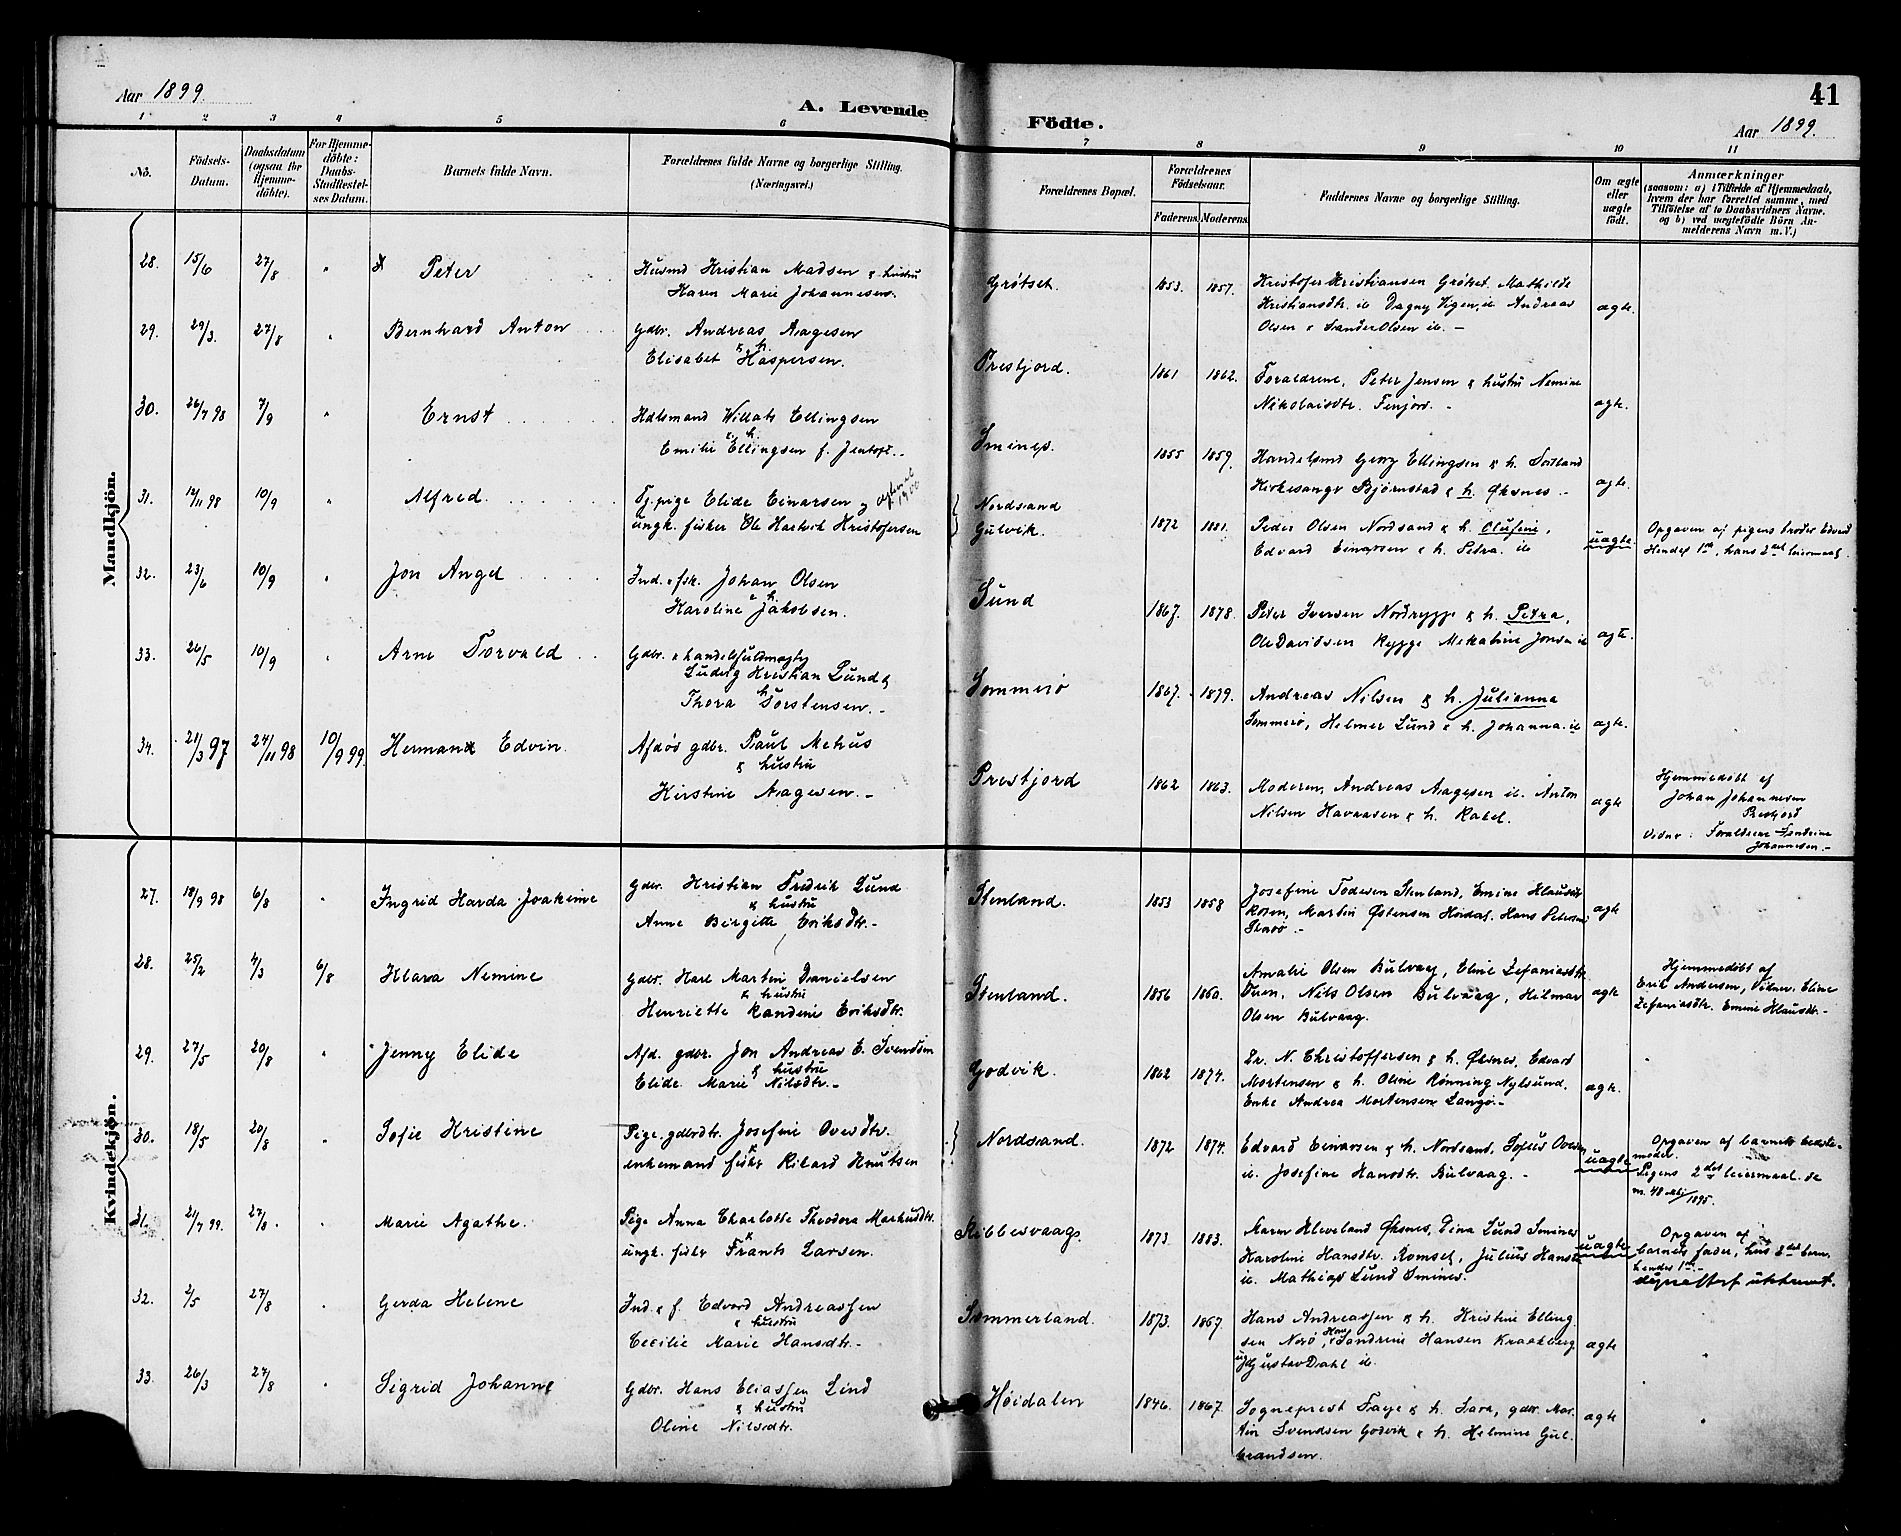 Aar 1899.
A. Levende
Födte.
41
Aar 1899.
1 2 3 4 5 6 7 8 9 10 11
No.
Födsels-
Datum.
Daabsdatum
(ogsaa for
Hjemme-
döbte).
For Hjemme-
döbte:
Daabs-
Stadfestel-
ses Datum.
Barnets fulde Navn.
Forældrenes fulde Navne og borgerlige Stilling.
(Næringsvei.)
Forældrenes Bopæl.
Forældrenes
Födselsaar.
Faderens. Moderens.
Faddernes Navne og borgerlige Stilling.
Om ægte
eller
uægte
födt.
Anmærkninger
(saasom: a) i Tilfælde af Hjemmedaab,
hvem der har forrettet samme, med
Tilföielse af to Daabsvidners Navne,
og b) ved uægtefödte Börn An-
melderens Navn m. V.)
Mandkjön.
28. 15/6 27/8 " Peter
Husmd Kristian Madsen & hustru
Karen Marie Johannesen.
Grøtset. 1853. 1857.
Kristofer Kristiansen Grøtset. Mathilde
Kristiansdtr. ib. Dagny Vigen, ib. Andreas
Olsen & Sander Olsen ib. –
ægte.
29. 29/3. 27/8 " Bernhard Anton
Gdbr. Andreas Aagesen
& h.
Elisabet Kaspersen.
Presfjord. 1861 1862.
Forældrene, Peter Jensen & hustru Nemine
Nikolaisdtr. Finfjord. –
ægte.
30. 26/7 98 7/9 " Ernst
Hdlsmand Willats Ellingsen
& h.
Emilie Ellingsen f. Jentoft. –
Smines. 1855 1859.
Handelsmd Georg Ellingsen & h. Sortland
Kirkesanger Bjørnstad & h. Øksnes. –
ægte.
31. 12/11 98 10/9 " Alfred.
Tj.pige Elide Einarsen og
ungk. fisker Ole Hartvik Kristofersen
1900
Nordsand
Gulvik. 1872 1881.
Peder Olsen Nordsand & h. Olufine,
Edvard Einarsen & h. Petra. ib
uægte.
Opgaven af pigens broder Edvard
Hendes 1ste, hans 2det leiermaal.
32. 23/6 10/9 " Jon Angel
Ind. & fsk. Johan Olsen
& h.
Karoline Jakobsen.
Sund 1867. 1878.
Peter Iversen Nordrygge & h. Petra,
Ole Davidsen Rygge Mekaline Jonsen ib
ægte.
33. 26/5 10/9 " Arne Torvald
Gdbr. & handelsfuldmægtig
Ludvig Kristian Lund &
h.
Thora Torstensen. –
Sommerø 1867. 1879.
Andreas Nilsen & h. Julianna
Sommerø, Helmer Lund & h. Johanna. ib
ægte.
34. 21/3 97 24/11 98 10/9 99. Herman Edvin.
Afdød gdbr. Paul Mehus
& hustru
Kirstine Aagesen. –
Presfjord 1862 1863.
Moderen, Andreas Aagesen ib. Anton
Nilsen Havaasen & h. Rakel.
ægte
Hjemmedøbt af
Johan Johannesen
Presfjord
Vidner: Forældrene & Sandrine
Johannesen. –
Kvindekjön.
27. 18/9 98 6/8 " Ingrid Harda Joakime
Gdbr. Kristian Fredrik Lund
& hustru
Anne Birgitte Eriksdtr. –
Stenland. 1853 1858
Josefine Todesen Stenland, Emine Klausdtr
Rosen, Martin Østensen Høidal, Hans Petersen
Skarø –
ægte
28. 25/2 4/3 6/8 Klara Nemine
Gdbr. Karl Martin Danielsen
& hustru
Henriette Randine Eriksdtr.
Stenland. 1856 1860.
Amalie Olsen Bulvaag, Eline Zefaniasdtr
Tuen, Nils Olsen Bulvaag, Hilmar
Olsen Bulvaag.
ægte
Hjemmedøbt af
Erik Andersen, Vidner. Eline
Zefaniasdtr. Emine Klausdtr. –
29. 27/5 20/8 " Jenny Elide
Afd. gdbr. Jon Andreas E. Svendsen
& hustru
Elide Marie Nilsdtr. –
Godvik. 1862 1874.
Lr. N. Christoffersen & h. Øksnes, Edvard
Mortensen & h. Oline Rønning Nylsund,
Enke Andrea Mortensen Langø. –
ægte.
30. 18/5 20/8 " Sofie Kristine
Pige. gdbrdtr. Josefine Ovesdtr.
&
enkemand fisker Rikard Knutsen
Nordsand. 1872 1874.
Edvard Einarsen & h. Nordsand, Tofius Ovesen
ib. Josefine Hansdtr. Bulvaag. –
uægte
Opgaven af barnets bedste-
moder.
Pigens 2det leiermaal.
31. 21/7 99. 27/8. " Marie Agathe.
Pige Anna Charlotte Theodora Markusdtr.
&
ungk. fisker Frants Larsen.
Stibbesvaag. 1873. 1883.
Karen Kleveland Øksnes, Eina Lund Smines
Karoline Hansdtr. Romset, Julius Hansen
ib. Mathias Lund Smines.
uægte
Opgaven af
barnets fader, hans 3die barn
hendes 1ste. –
32. 2/5 27/8 " Gerda Helene
Ind. & f. Edvard Andreassen
& hustru
Cecilie Marie Hansdtr. –
Sommerland. 1873. 1867
Hans Andreassen & h. Kristine Elling
sen Norø, Sandrine Hansen Kraakberg
Gustav Dahl ib.
ægte
33. 26/3 27/8 " Sigrid Johanne
Gdbr. Hans Eliassen Lind
& hustru
Oline Nilsdtr.
Høidalen 1846. 1867.
Sogneprest Faye & h. Sara, gdbr. Mar-
tin Svendsen Godvik & h. Helmine Gul-
brandsen.
ægte